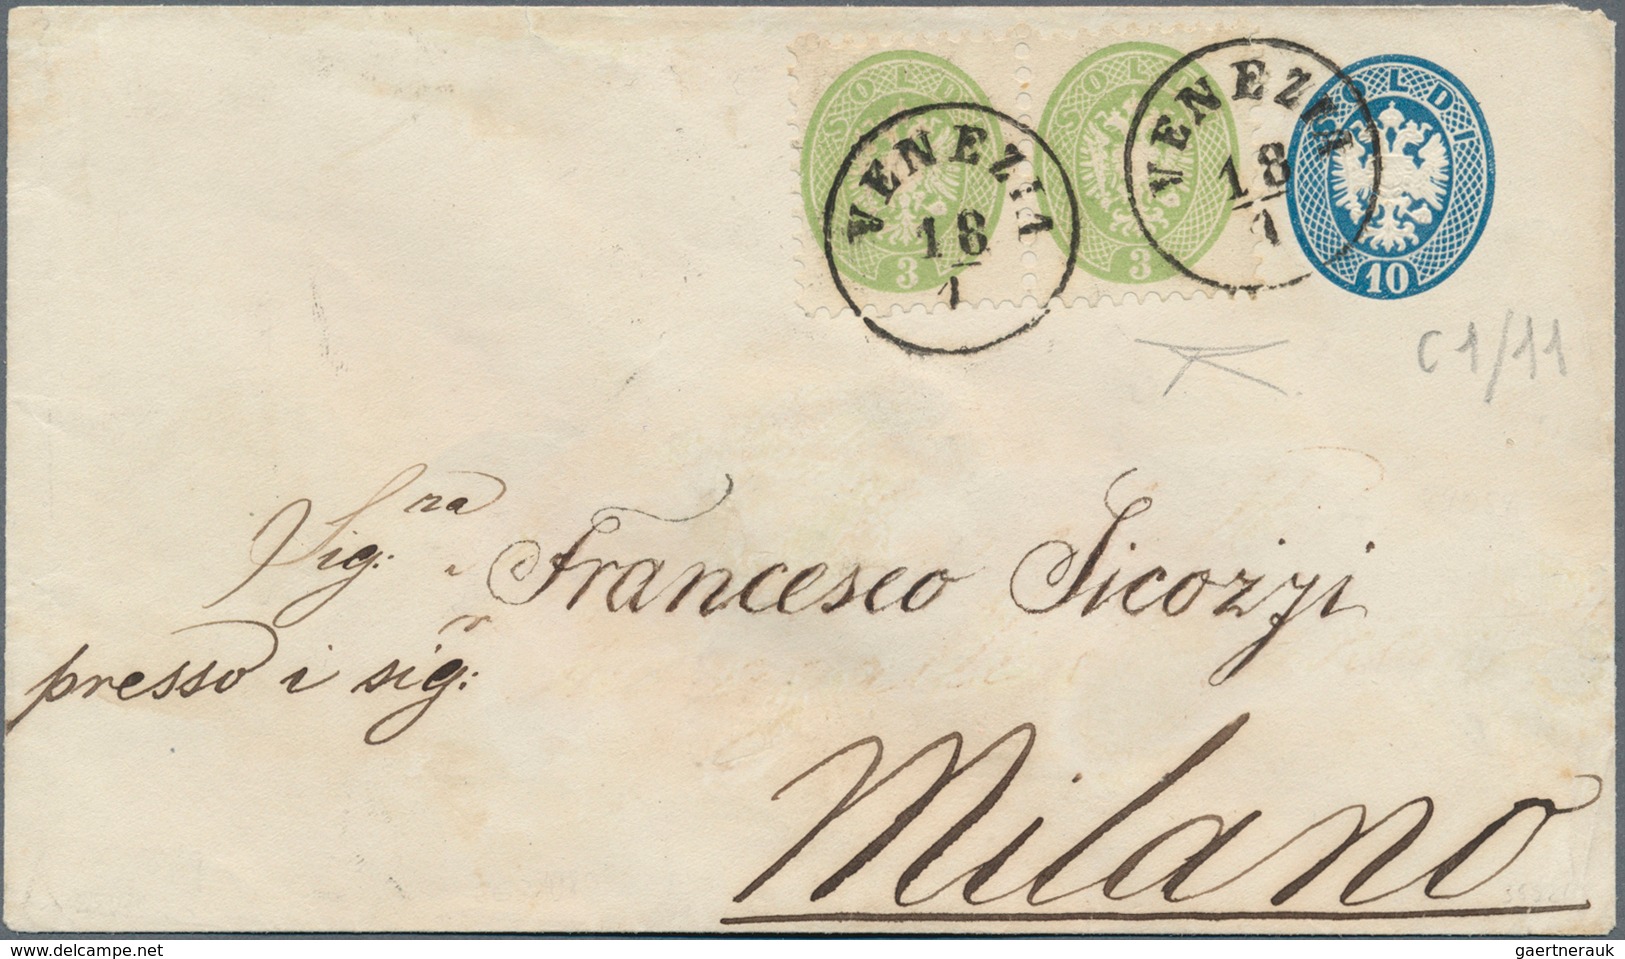 SOLDI 3
SOLDI 3
SOLDI 10
VENEZIA 18/1
VENEZIA 18/1
C 1/11
Sig:ra Francesco Sicozzi
presso i sig:ri
Milano
delcampe.net
gaertnerauk